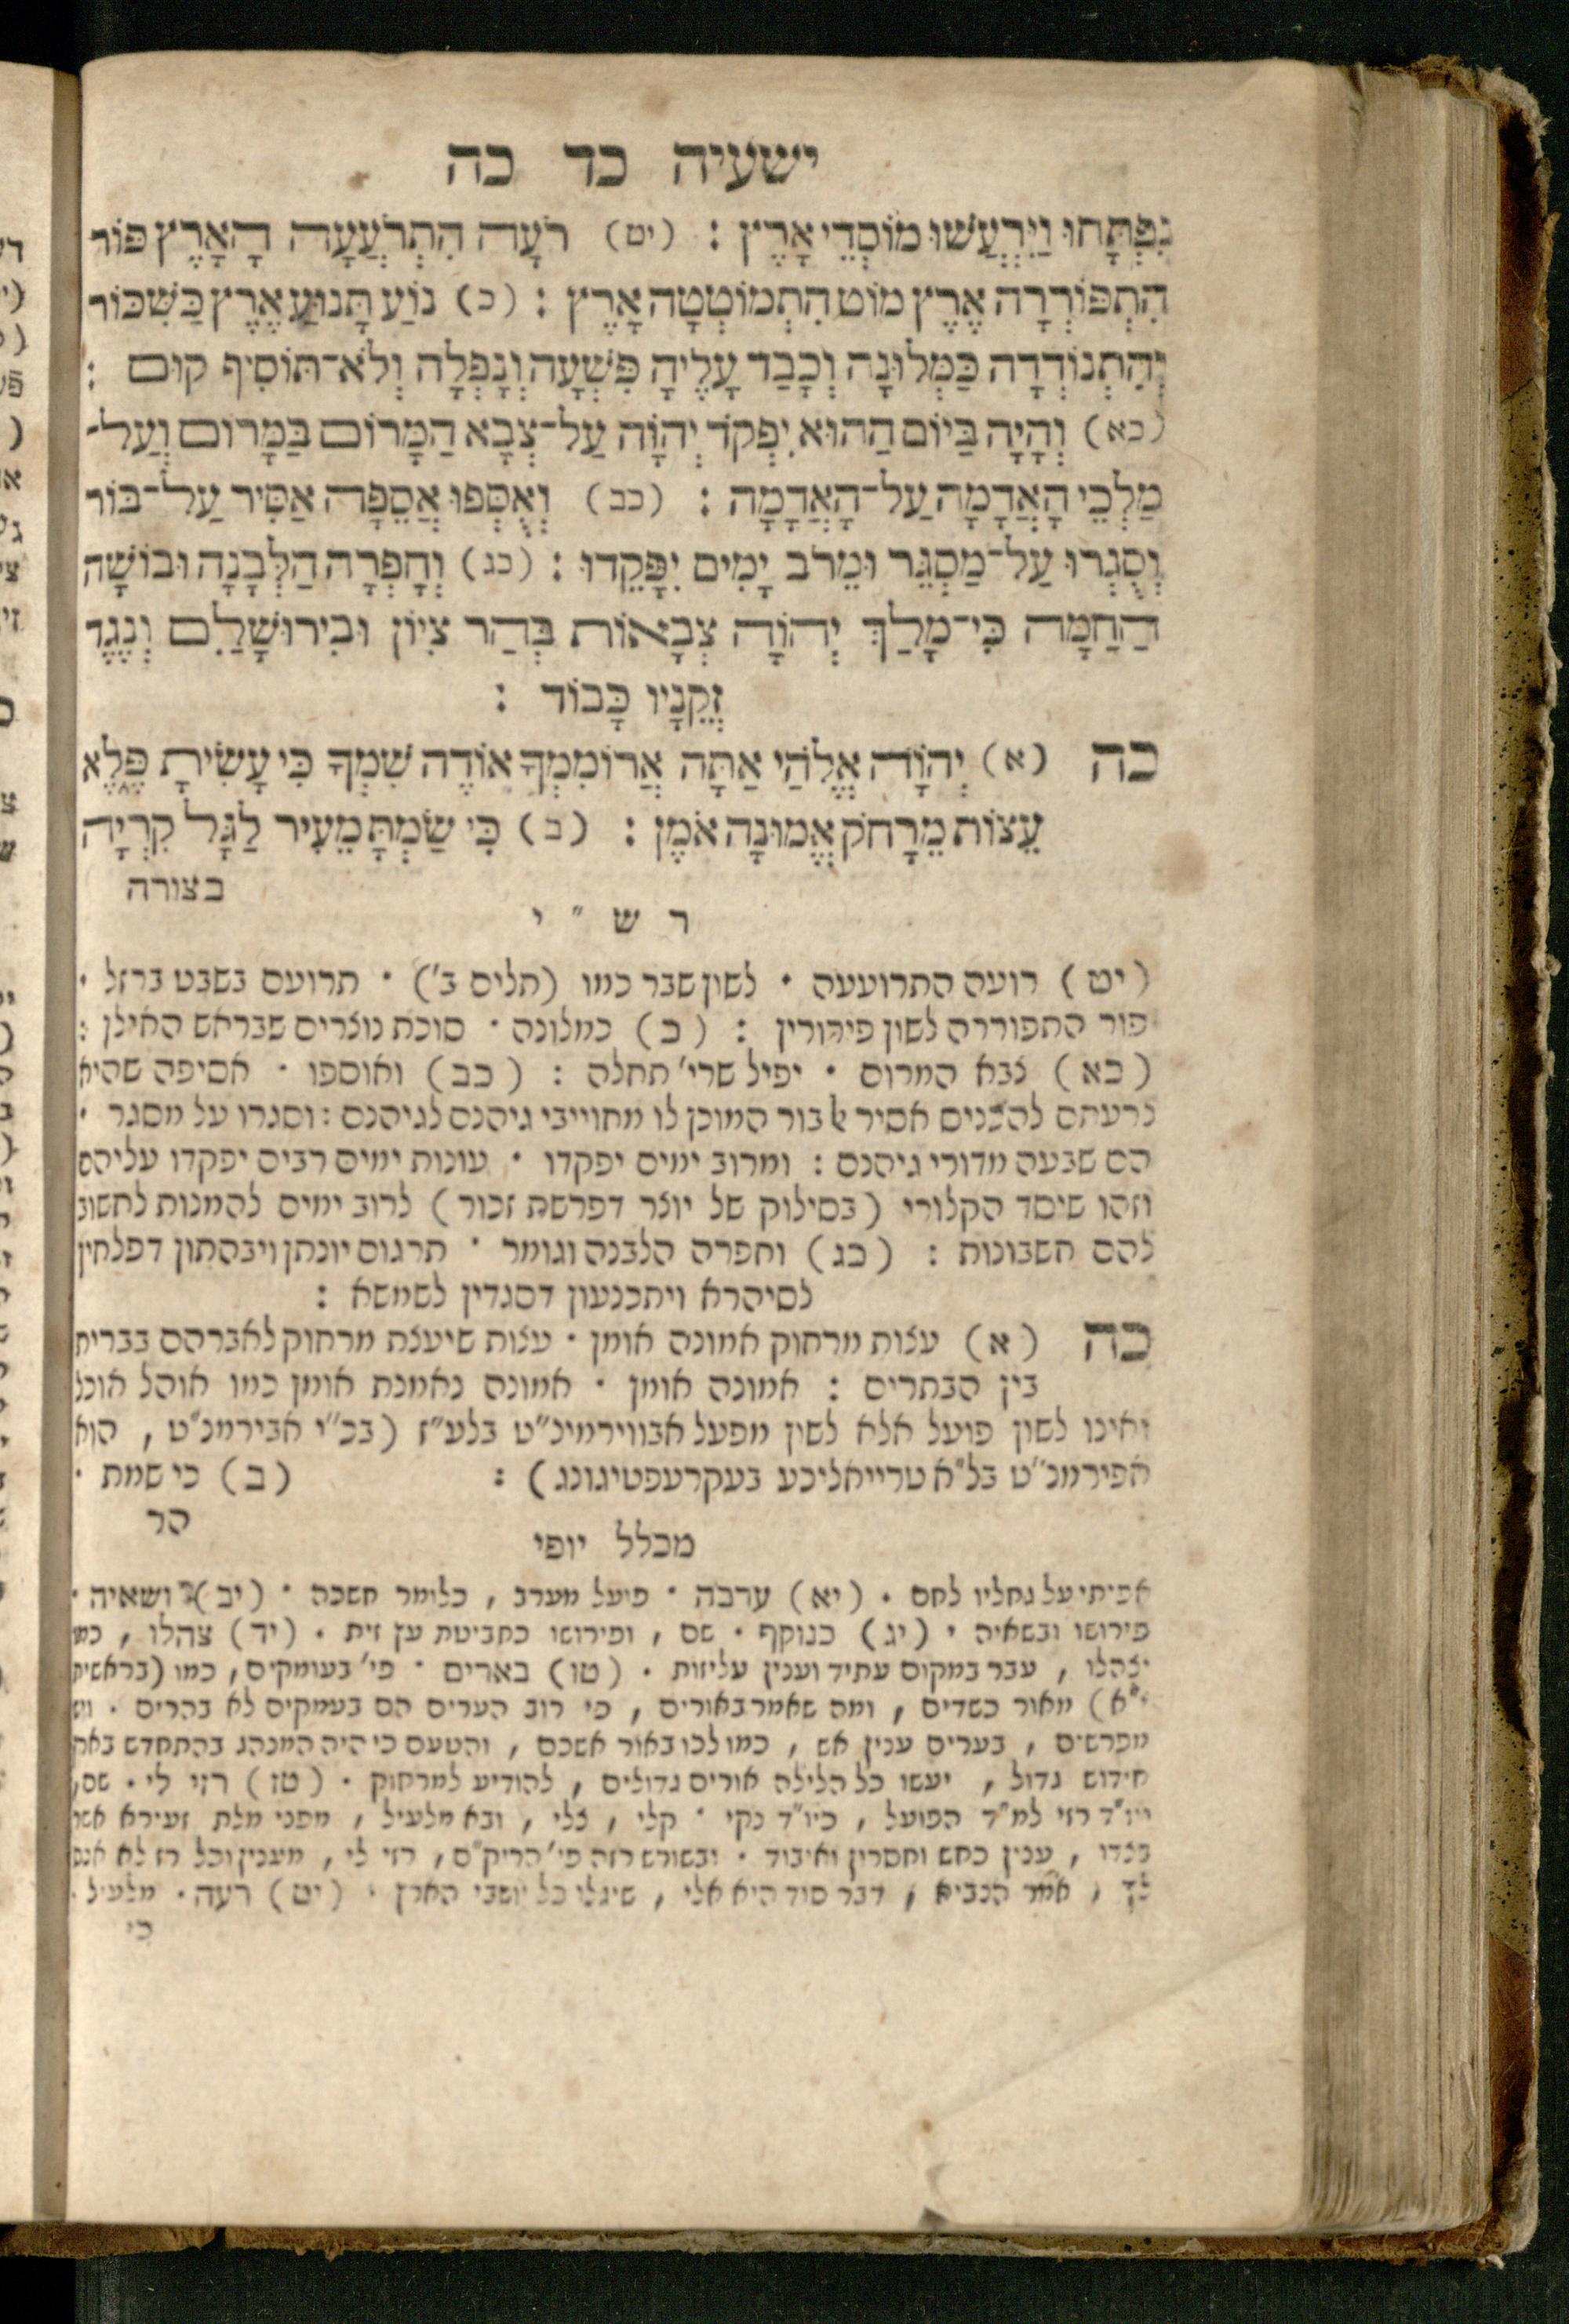 ישעיה כד כה
נִפְתָּחוּ וַיִּרְעֲשׁוּ מוֹסְדֵי אָרֶץ : (יט) רֹעָה הִתְרֹעֲעָה הָאָרֶץ פּוֹר
הִתְפּוֹרְרָה אֶרֶץ מוֹט הִתְמוֹטְטָה אָרֶץ : (כ) נוֹעַ תָּנוּעַ אֶרֶץ כַּשִּׁכּוֹר
וְהִתְנוֹדְדָה כַּמְּלוּנָה וְכָבַד עָלֶיהָ פִּשְׁעָהּ וְנָפְלָה וְלֹא־תוֹסִיף קוּם :
(כא) וְהָיָה בַּיּוֹם הַהוּא יִפְקֹד יְהוָֹה עַל־צְבָא הַמָּרוֹם בַּמָּרוֹם וְעַל־
מַלְכֵי הָאֲדָמָה עַל־הָאֲדָמָה : (כב) וְאֻסְּפוּ אֲסֵפָה אַסִּיר עַל־בּוֹר
וְסֻגְּרוּ עַל־מַסְגֵּר וּמֵרֹב יָמִים יִפָּקֵדוּ : (כג) וְחָפְרָה הַלְּבָנָה וּבוֹשָׁה
הַחַמָּה כִּי־מָלַךְ יְהוָֹה צְבָאוֹת בְּהַר צִיּוֹן וּבִירוּשָׁלַםִ וְנֶגֶד
זְקֵנָיו כָּבוֹד :
כה (א) יְהוָֹה אֱלֹהַי אַתָּה אֲרוֹמִמְךָ אוֹדֶה שִׁמְךָ כִּי עָשִׂיתָ פֶּלֶא
עֵצוֹת מֵרָחֹק אֱמוּנָה אֹמֶן : (ב) כִּי שַׂמְתָּ מֵעִיר לַגָּל קִרְיָה
בצורה
ר ש " י
(יט) רועה התרועעה · לשון שבר כמו (תלים ב') · תרועם בשבט ברזל ·
פור התפוררה לשון פירורין : (כ) כמלונה · סוכת נוצרים שבראש האילן :
(כא) צבא המרום · יפיל שרי' תחלה : (כב) ואוספו · אסיפה שהיא
לרעתם להכניס אסיר אל בור המוכן לו מחוייבי גיהנם לגיהנם : וסגרו על מסגר ·
הם שבעה מדורי גיהנם : ומרוב ימים יפקדו · עונות ימים רבים יפקדו עליהם
וזהו שיסד הקלורי (בסילוק של יוצר דפרשת זכור) לרוב ימים להמנות לחשוב
להם חשבונות : (כג) וחפרה הלבנה וגומר · תרגום יונתן ויבהתון דפלחין
לסיהרא ויתכנעון דסגדין לשמשא :
כה (א) עצות מרחוק אמונה אומן · עצות שיעצת מרחוק לאברהם בברית
בין הבתרים : אמונה אומן · אמונה נאמנת אומן כמו אוהל אוכל
ואינו לשון פועל אלא לשון מפעל אבווירמינ"ט בלע"ז (בכ"י אבירמנ"ט , הוא
אפירמנ"ט בל"א טרייאליכע בעקרעפטיגונג) : (ב) כי שמת ·
הר
מכלל יופי
אפיתי על גחליו לחם · (יא) ערבה · פועל מערב , כלומר חשכה · (יב) ושאיה ·
פירושו ובשאיה · (יג) כנוקף · שם , ופירושו כחביטת עץ זית · (יד) צהלו , כמו
יצהלו , עבר במקום עתיד וענין עליזות · (טו) בארים · פי' בעומקים , כמו (בראשית
י"א) מאור כשדים , ומה שאמר באורים , כי רוב הערים הם בעמקים לא בהרים · ויש
מפרשים , בערים ענין אש , כמו לכו באור אשכם , והטעם כי היה המנהג בהתחדש באה
חידוש גדול , יעשו כל הלילה אורים גדולים , להודיע למרחוק · (טז) רזי לי · שם,
ויו"ד רזי למ"ד הפועל , כיו"ד נקי · קלי , צלי , ובא מלעיל , מפני מלת זעירא אשר
בצדו , ענין כחש וחסרון ואיבוד · ובשורש רזה פי' הריק"ם , רזי לי , מענין וכל רז לא אנס
לך , אמר הנביא , דבר סוד היא אלי , שיגלו כל יושבי הארץ · (יט) רעה · מלעיל ·
כי